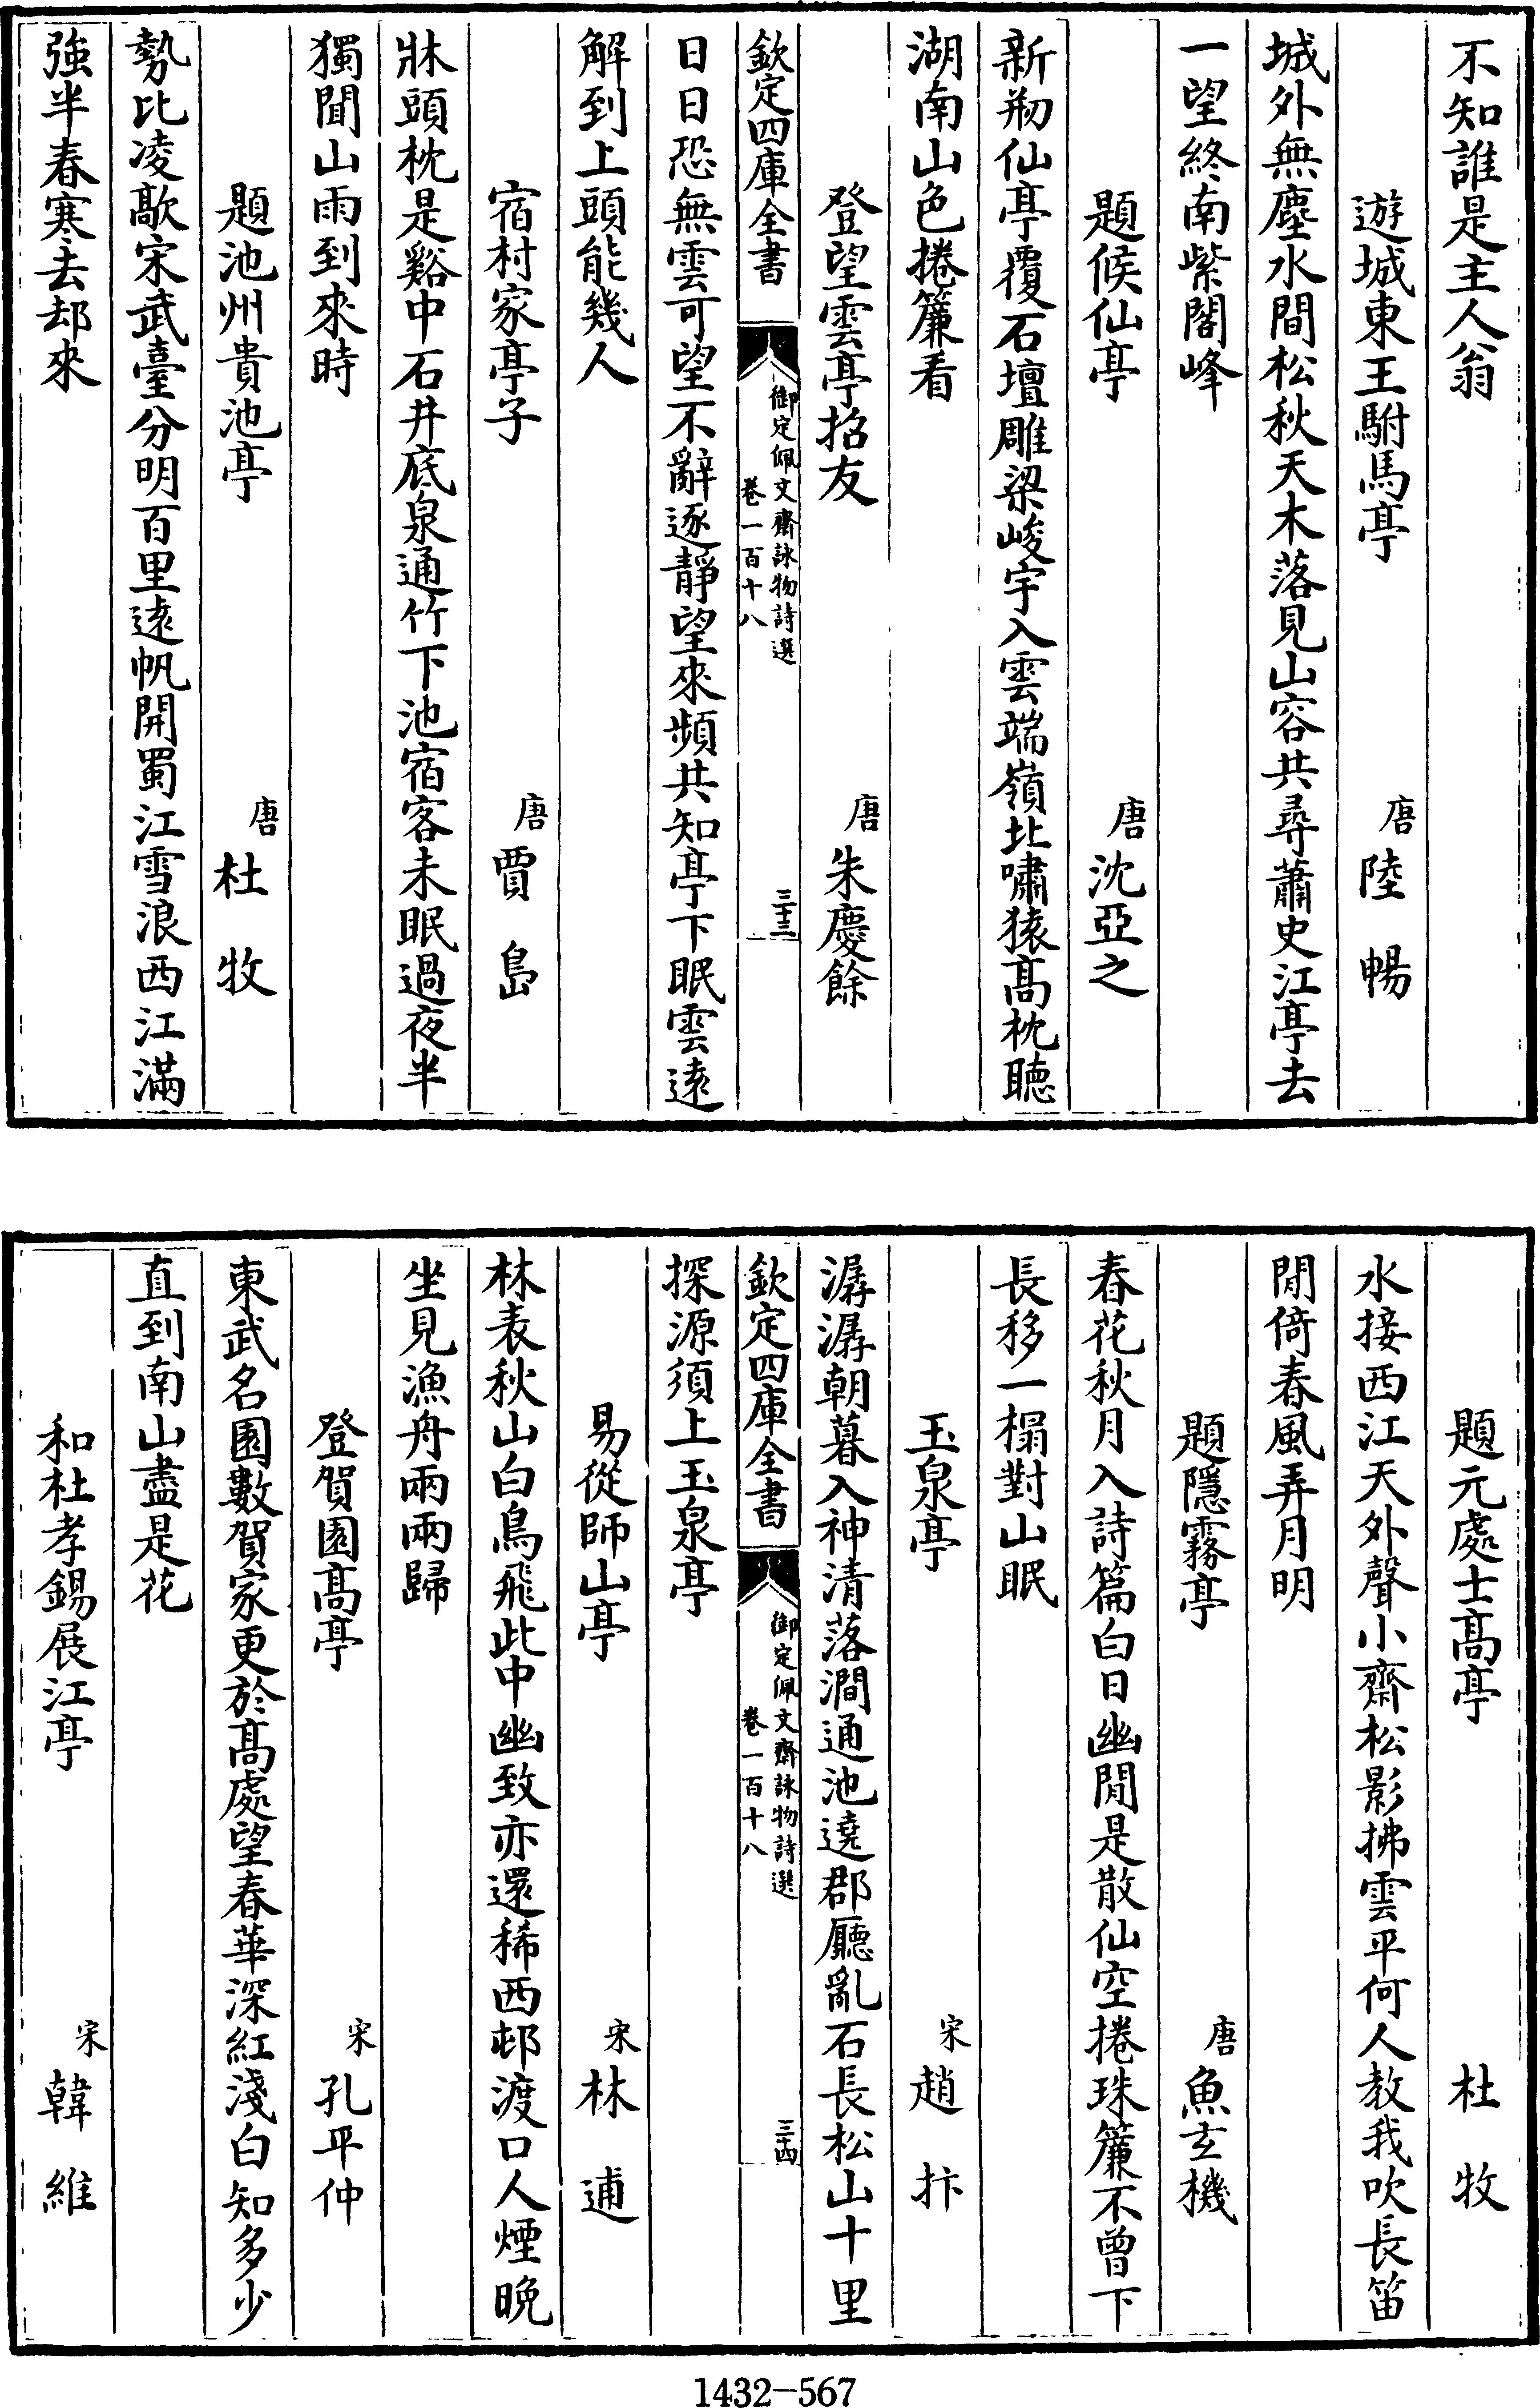 不知誰是主人翁
遊城東王駙馬亭　唐陸暢
城外無塵水間松秋天木落見山容共尋蕭史江亭去
一望終南紫閣峰
題候仙亭　唐沈亞之
新剏仙亭覆石壇雕梁峻宇入雲端嶺北嘯猿高枕聽
湖南山色捲簾看
登望雲亭招友　唐朱慶餘
欽定四庫全書
御定佩文齋詠物詩選
卷一百十八
三十三
日日恐無雲可望不辭逐靜望來頻共知亭下眠雲遠
解到上頭能幾人
宿村家亭子　唐賈島
牀頭枕是谿中石井底泉通竹下池宿客未眠過夜半
獨聞山雨到來時
題池州貴池亭　唐杜牧
勢比凌歊宋武臺分明百里遠帆開蜀江雪浪西江滿
強半春寒去却來
題元處士高亭　杜牧
水接西江天外聲小齋松影拂雲平何人教我吹長笛
閒倚春風弄月明
題隱霧亭　唐魚玄機
春花秋月入詩篇白日幽閒是散仙空捲珠簾不曾下
長移一榻對山眠
玉泉亭　宋趙抃
潺潺朝暮入神清落澗通池遶郡廳亂石長松山十里
欽定四庫全書
御定佩文齋詠物詩選
卷一百十八
三十四
探源須上玉泉亭
易從師山亭　宋林逋
林表秋山白鳥飛此中幽致亦還稀西邨渡口人煙晚
坐見漁舟兩兩歸
登賀園高亭　宋孔平仲
東武名園數賀家更於高處望春華深紅淺白知多少
直到南山盡是花
和杜孝錫展江亭　宋韓維
1432-567